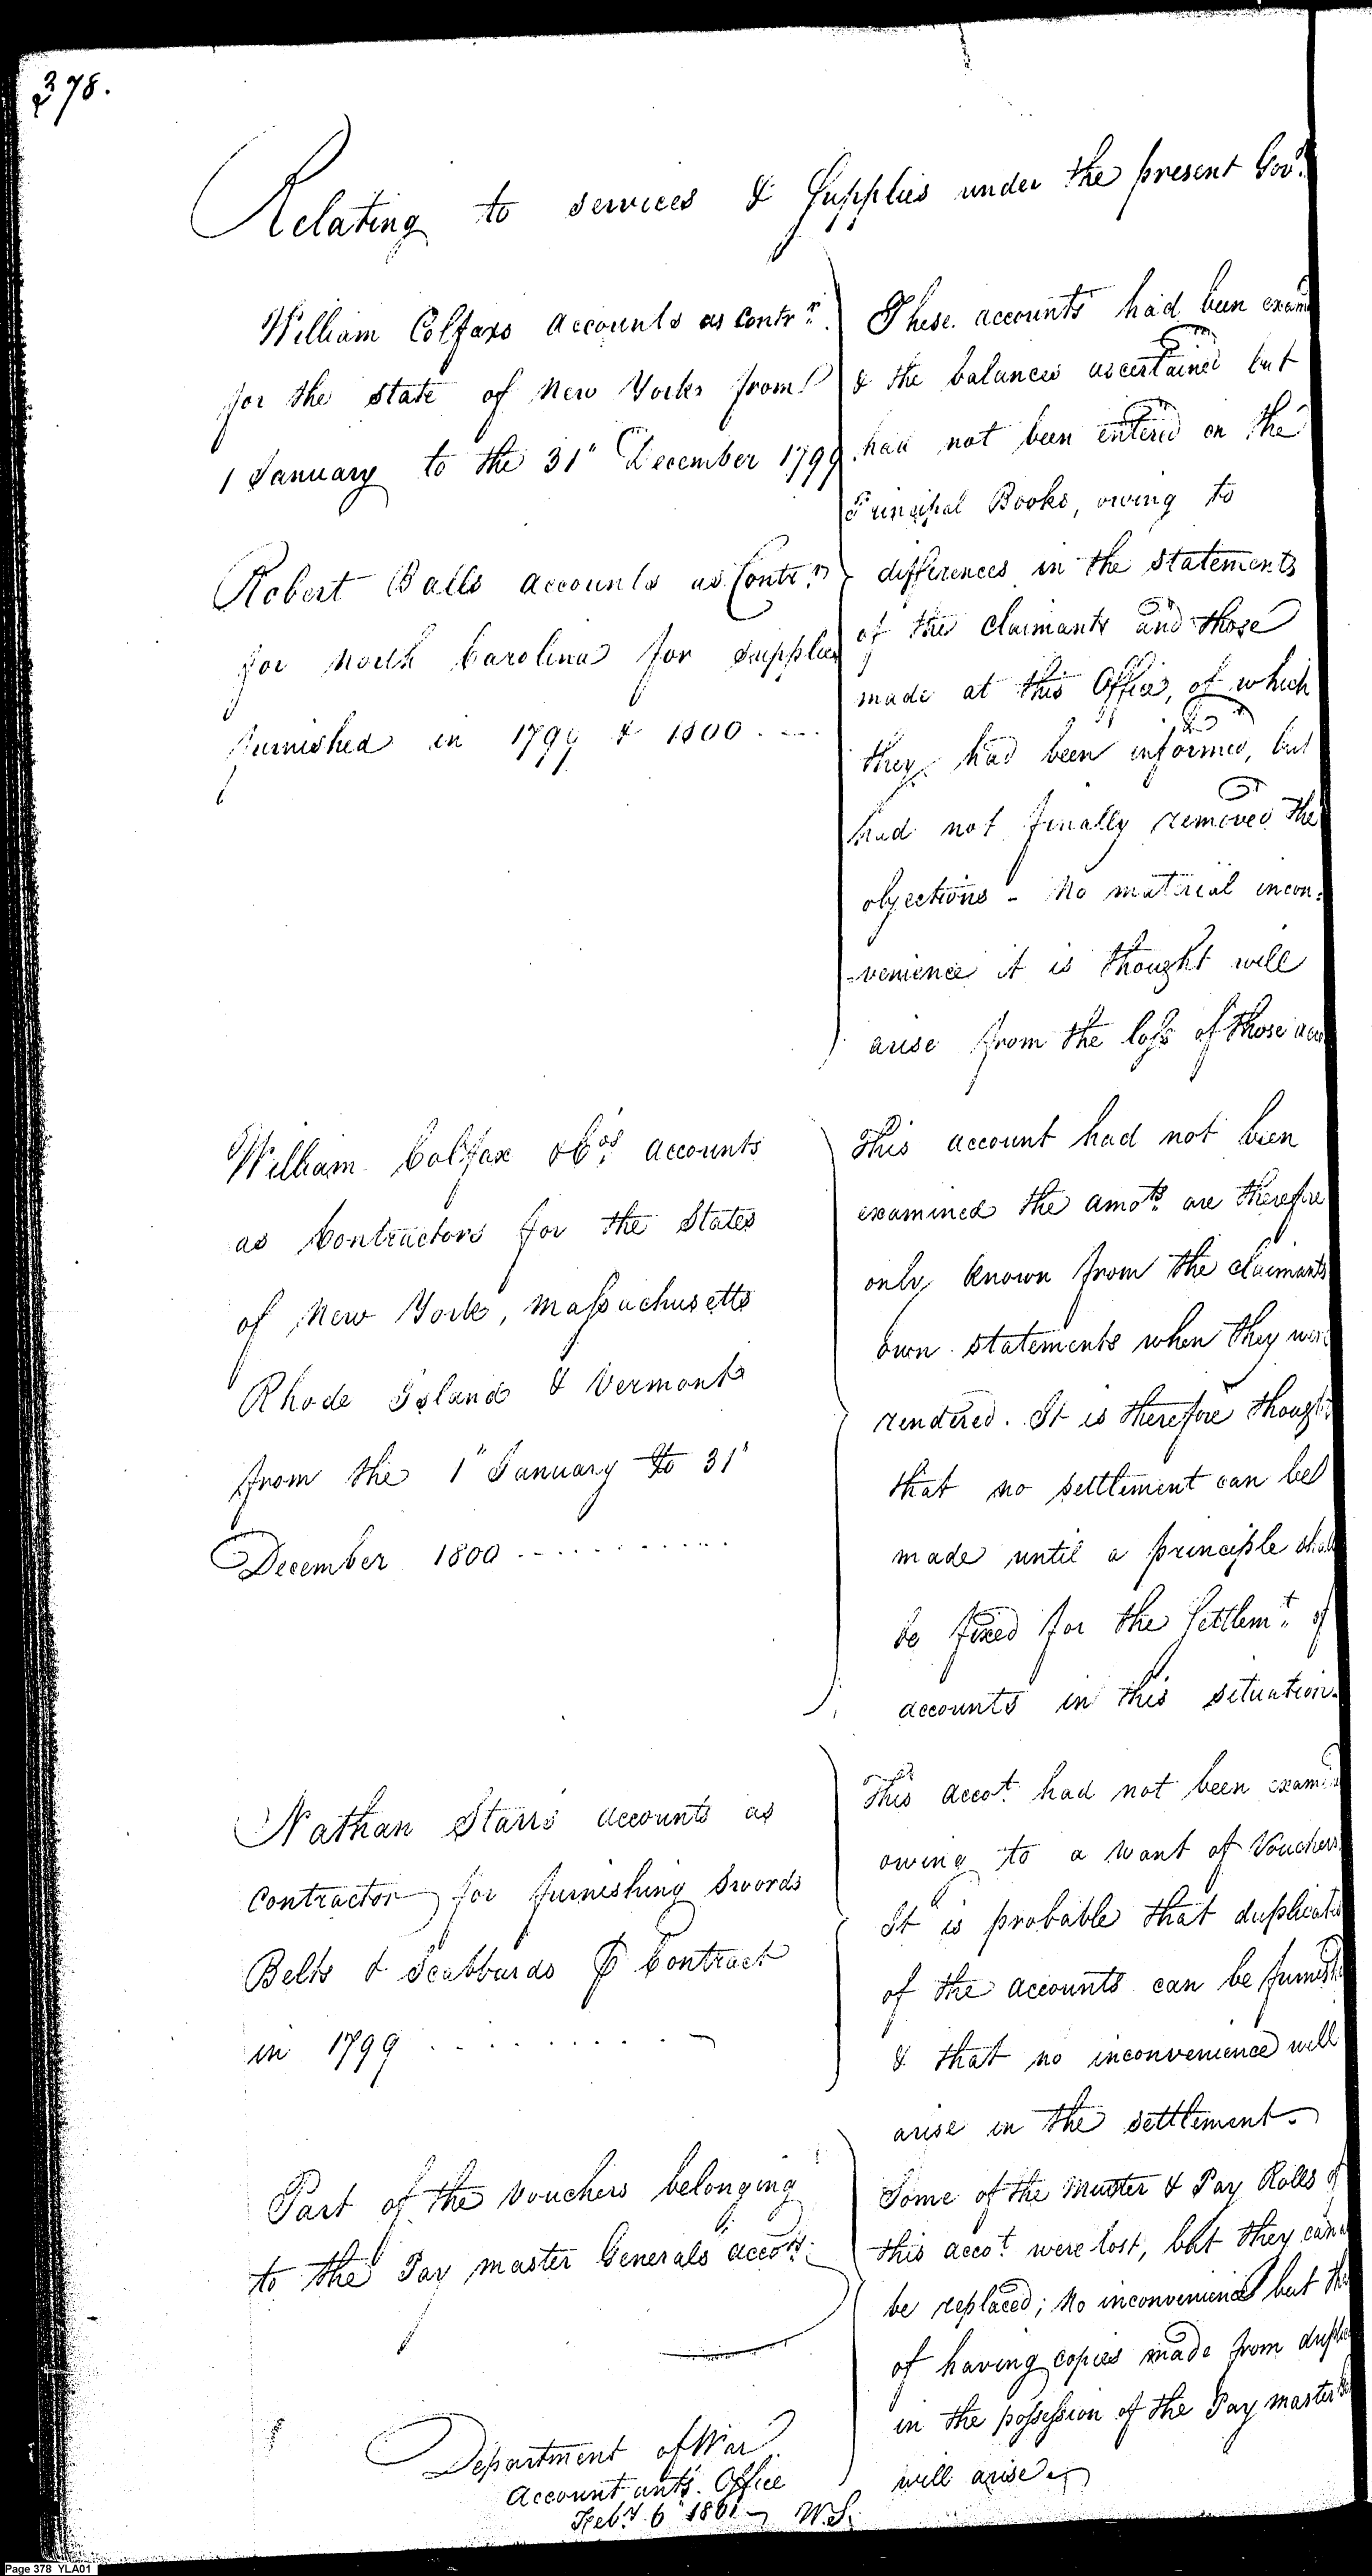 378.
Relating to services & Supplies under the present Govt.
William Colfaxs accounts as Contrr.
for the state of New York from
1 January to the 31" December 1799
Robert Balls accounts as Contrr
for North Carolina for supplies
furnished in 1799 & 1800
William Colfax & Cos. accounts
as Contractors for the States
of New York, Massachusetts
Rhode Island & Vermont
from the 1" January to 31"
December 1800
Nathan Starrs accounts as
Contractor for furnishing Swords
Belts & Scabbards ⅌ Contract
in 1799
Part of the Vouchers belonging
to the Pay master Generals accots.
These accounts had been exam
& the balances ascertained but
had not been entered on the
Principal Books, owing to
differences in the statements
of the Claimants and those
made at this Office, of which
they had been informed, but
had not finally removed the
objections - No material incon-
-venience it is thought will
arise from the loss of those
This account had not been
examined the amots. are therefore
only known from the claimants
own statements when they were
rendered. It is therefore though
that no settlement can be
made until a principle shall
be fixed for the Settlemt. of
accounts in this situation.
This accot. had not been exami
owing to a want of Vouchers
It is probable that duplicate
of the accounts can be furnish
& that no inconvenience will
arise in the settlement.
Some of the Muster & Pay Rolls of
this accot. were lost, but they can
be replaced; No inconvenience but
of having copies made from dupli
in the possession of the Pay master
will arise.
Department of War
Accountants Office
Feby. 6" 1801 W.S.
Page 378 YLA01